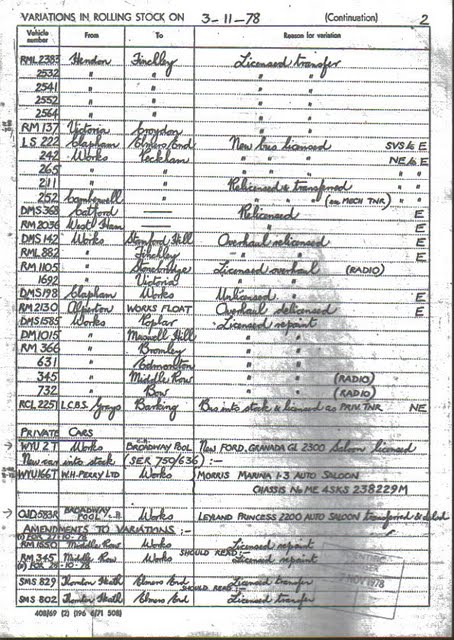 VARIATIONS IN ROLLING STOCK ON 3-11-78 (Continuation) 2
Vehicle number From To Reason for variation
RML 2383 Hendon Finchley Licensed transfer
2532 " " " "
2541 " " " "
2552 " " " "
2564 " " " "
RM 137 Victoria Croydon " "
LS 222 Clapham Elmers End New bus licensed SVS to E
242 Works Peckham " " " NE to E
265 " " " " "
211 " " Relicensed & transferred " "
252 Camberwell " " " (ex MECH TNR) " "
DMS 368 Catford — Relicensed E
RM 2036 West Ham — " E
DMS 142 Works Stamford Hill Overhaul relicensed E
RML 882 " Finchley " " E
RM 1105 " Stonebridge Licensed overhaul (RADIO)
1692 " Victoria " "
DMS 198 Clapham Works Unlicensed E
RM 2130 Alperton WORKS FLOAT Overhaul delicensed E
DMS 1585 Works Poplar Licensed repaint
DM 1015 " Muswell Hill " "
RM 366 " Bromley " "
631 " Edmonton " "
345 " Middle Row " " (RADIO)
732 " Bow " " (RADIO)
RCL 2251 L.C.B.S. Grays Barking Bus into stock & licensed as PRIV. TNR NE
PRIVATE CARS
WYU 2 T Works BROADWAY POOL New FORD GRANADA GL 2300 Saloon licensed
New car into stock (SER 759/636) :-
WYU 166T W.H. PERRY LTD Works MORRIS MARINA 1.3 AUTO SALOON
CHASSIS No ME 4SKS 238229M
OJD 583R BROADWAY POOL Works LEYLAND PRINCESS 2200 AUTO SALOON transferred & delicd
AMENDMENTS TO VARIATIONS :-
(1) FOR 27-10-78
RM 1650 Middle Row Works Licensed repaint
SHOULD READ :-
RM 345 Middle Row Works Licensed repaint
(2) FOR 28-10-78
SMS 829 Thornton Heath Elmers End Licensed transfer
SHOULD READ :-
SMS 802 Thornton Heath Elmers End Licensed transfer
408/69 (2) (196 6/71 508)
NOV 1978